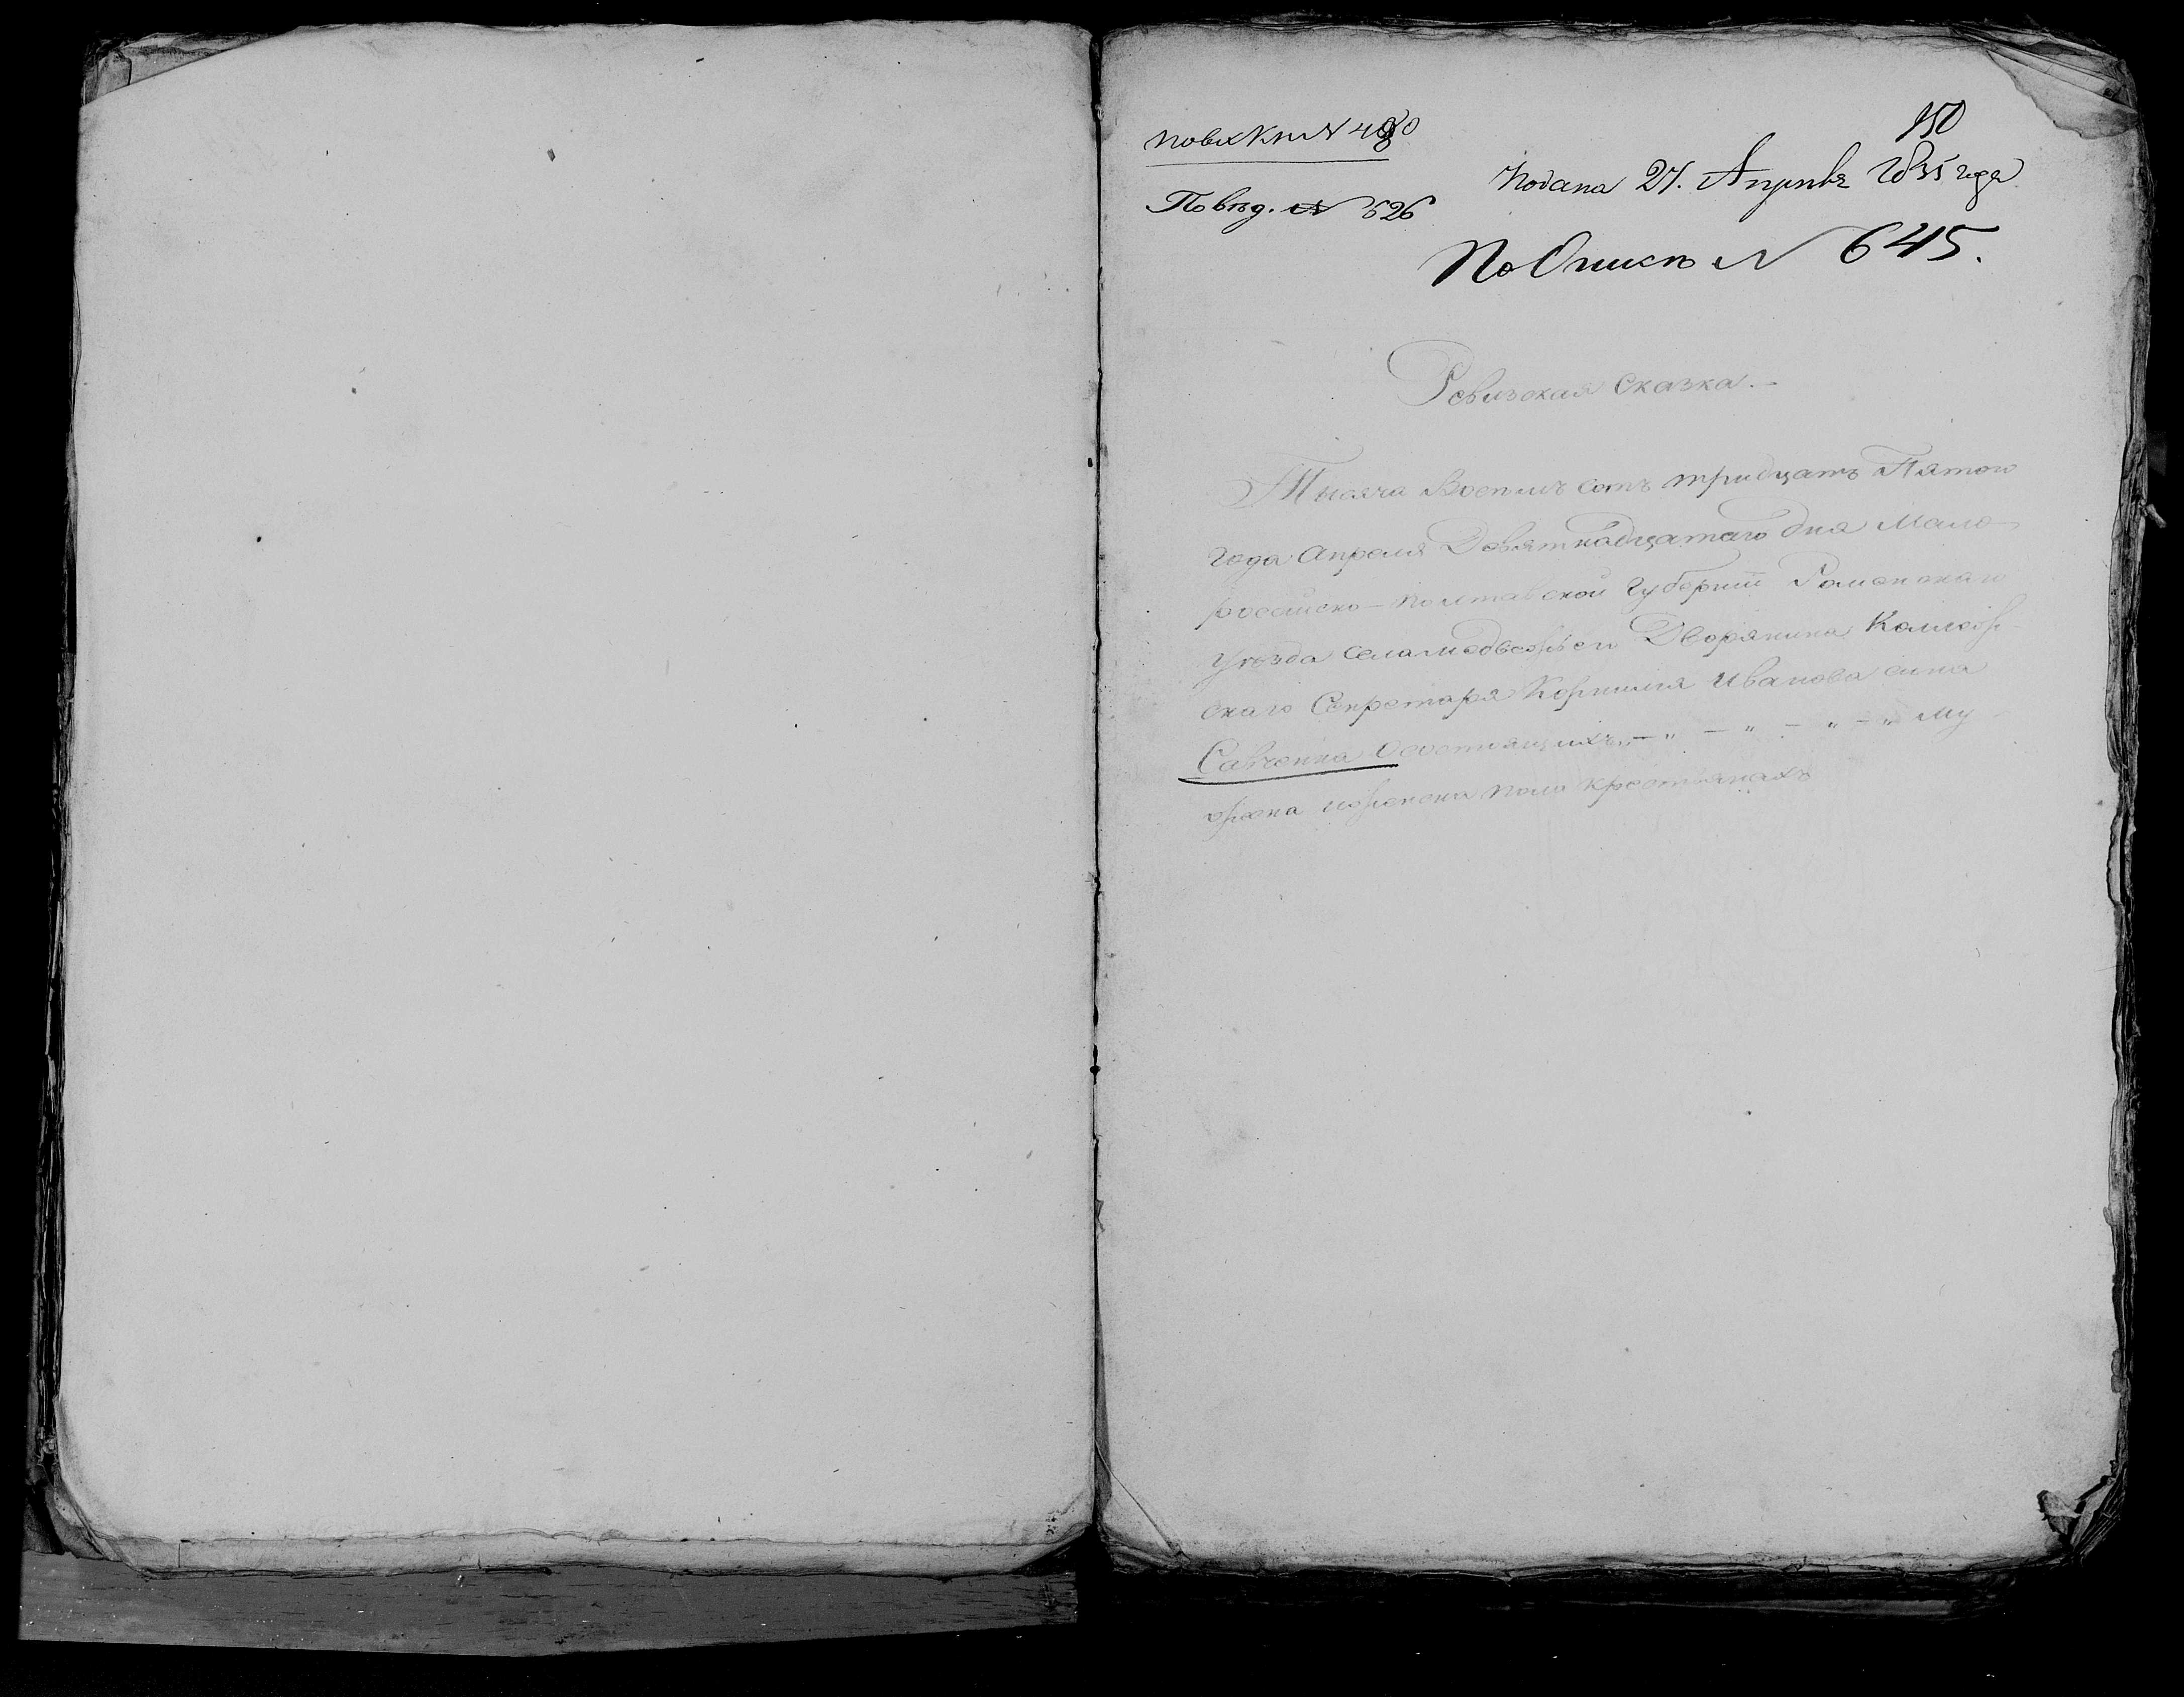 150
По вх Кни № 4080
Подана 27. Апреля 1835 года
По вѣд. № 526
По Описи № 645.
Ревизская Сказка. —
Тысяча Восемъ сотъ тридцать Пятого
года Апреля Девятнадцатаго дня Мало-
российско-Полтавской Губернии Роменскаго
уезда села медвежьего Дворянина Колеж-
скаго Секретаря Корнилия Иванова сина
Савченка Осостоящихъ „ — „ — „ — „ — „ му
жеска иженска пола крестьянахъ